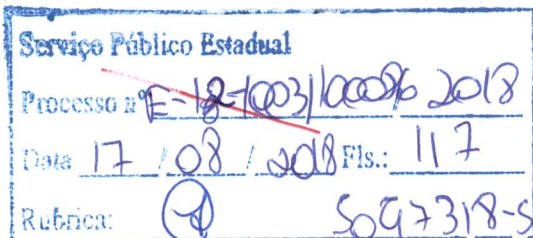 Serviço Público Estadual
Processo nº E-18-1003/100086 2018
Data 17 / 08 / 2018 Fls.: 117
Rubrica: 5097318-5